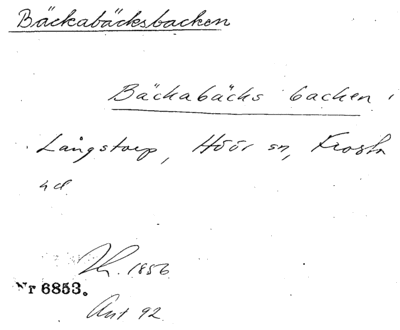 Bäckabäcksbacken
Bäckabäcks backen,
Långstorp, Höör sn, Frosta
hd
Th. 1856
Nr 6853.
Ant 92